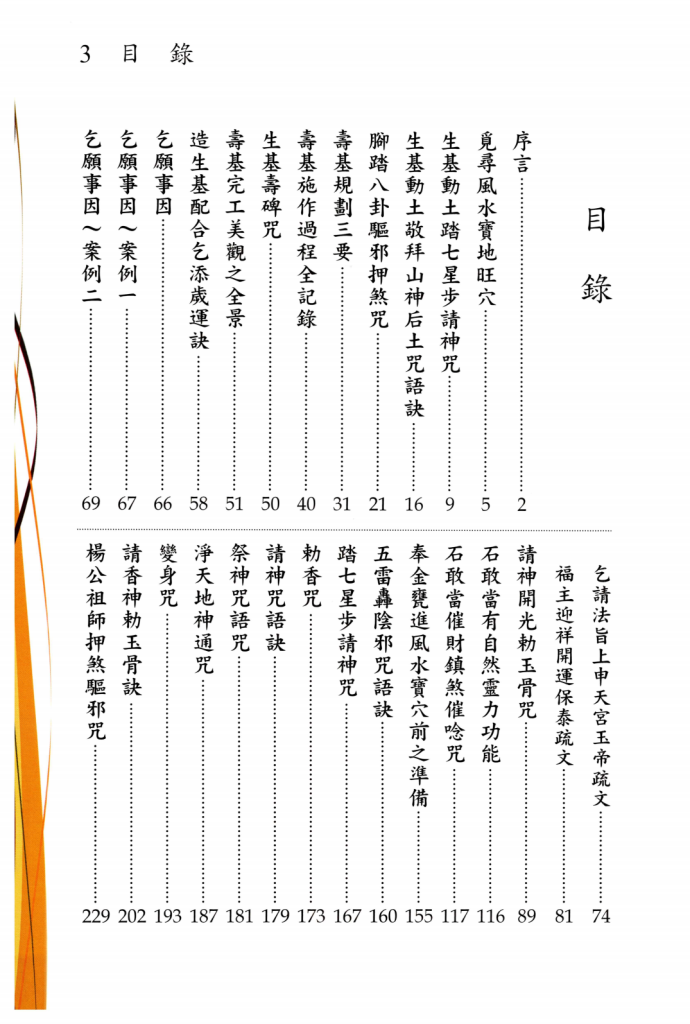 3 目 錄
目 錄
序言 2
覓尋風水寶地旺穴 5
生基動土踏七星步請神咒 9
生基動土敬拜山神后土咒語訣 16
腳踏八卦驅邪押煞咒 21
壽基規劃三要 31
壽基施作過程全記錄 40
生基壽碑咒 50
壽基完工美觀之全景 51
造生基配合乞添歲運訣 58
乞願事因 66
乞願事因～案例一 67
乞願事因～案例二 69
乞請法旨上申天宮玉帝疏文 74
福主迎祥開運保泰疏文 81
請神開光勅玉骨咒 89
石敢當有自然靈力功能 116
石敢當催財鎮煞催唸咒 117
奉金甕進風水寶穴前之準備 155
五雷轟陰邪咒語訣 160
踏七星步請神咒 167
勅香咒 173
請神咒語訣 179
祭神咒語咒 181
淨天地神通咒 187
變身咒 193
請香神勅玉骨訣 202
楊公祖師押煞驅邪咒 229